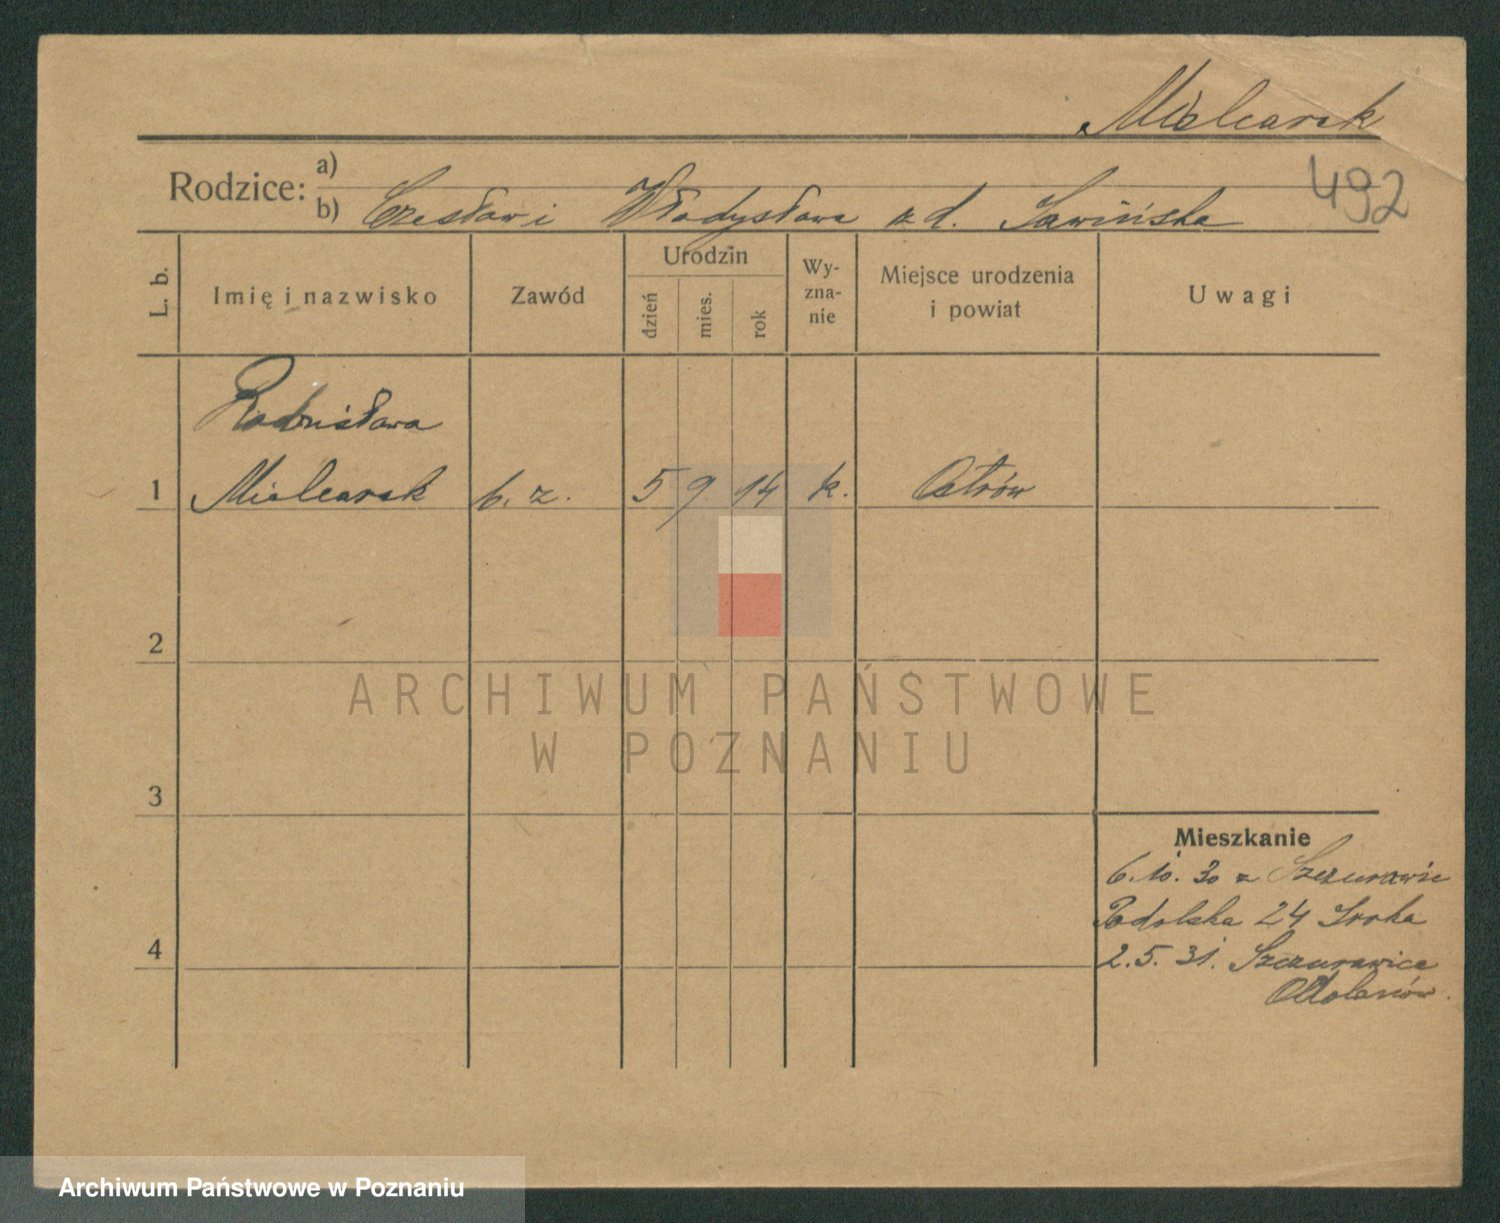 Mielcarek
492
Rodzice: a)
b) Czesław i Władysława z d. Sawińska
L. b.
Imię i nazwisko
Zawód
Urodzin
dzień
mies.
rok
Wy-
zna-
nie
Miejsce urodzenia
i powiat
Uwagi
Radzisława
1 Mielcarek b. z. 5 9 14 k. Ostrów
2
3
4
Mieszkanie
6.10.30 z Szczurawic
Podolska 24 Sroka
2.5.31. Szczurawice
Odolanów.
ARCHIWUM PAŃSTWOWE
W POZNANIU
Archiwum Państwowe w Poznaniu